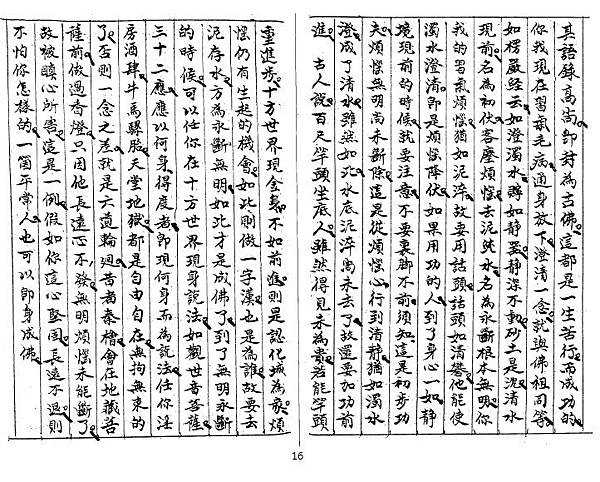 其語錄高尚即封為古佛。這都是一生苦行而成功的
你我現在習氣毛病通身放下。澄清一念。就與佛祖同等
如楞嚴經云如澄濁水。歸如靜器。靜深不動。砂土是沈。清水
現前。名為初伏客塵煩惱。去泥純水。名為永斷根本無明。你
我的習氣煩惱。猶如泥滓。故要用話頭。話頭如清礬。他能使
濁水澄清。即是煩惱降伏。如果用功的人。到了身心一如。靜
境現前的時候。就要注意。不要裹脚不前。須知。這是初步功
夫。煩惱無明尚未斷除。這是從煩惱心行到清靜。猶如濁水
澄成了清水。雖然如此。水底泥滓尚未去了。故還要加功前
進。古人說。百尺竿頭坐底人。雖然得見未為貴。若能竿頭
重進步。十方世界現全身。不如前進。則是認化城為家。煩
惱仍有生起的機會。如此則做一字漢。也是為難。故要去
泥存水。方為永斷無明。如此才是成佛了。到了無明永斷
的時候。可以任你在十方世界現身說法。如觀世音菩薩
三十二應。應以何身得度者。即現何身而為說法。任你淫
房酒肆。牛馬騾胎。天堂地獄。都是自由自在。無拘無束的
了。否則一念之差。就是六道輪迴。昔者秦檜會在地藏菩
薩前做過香燈。只因他長遠心不發。無明煩惱未能斷了
故被瞋心所害。這是一例。假如你這心堅固。長遠不退。則
不怕你怎樣的一個平常人。也可以即身成佛。
16